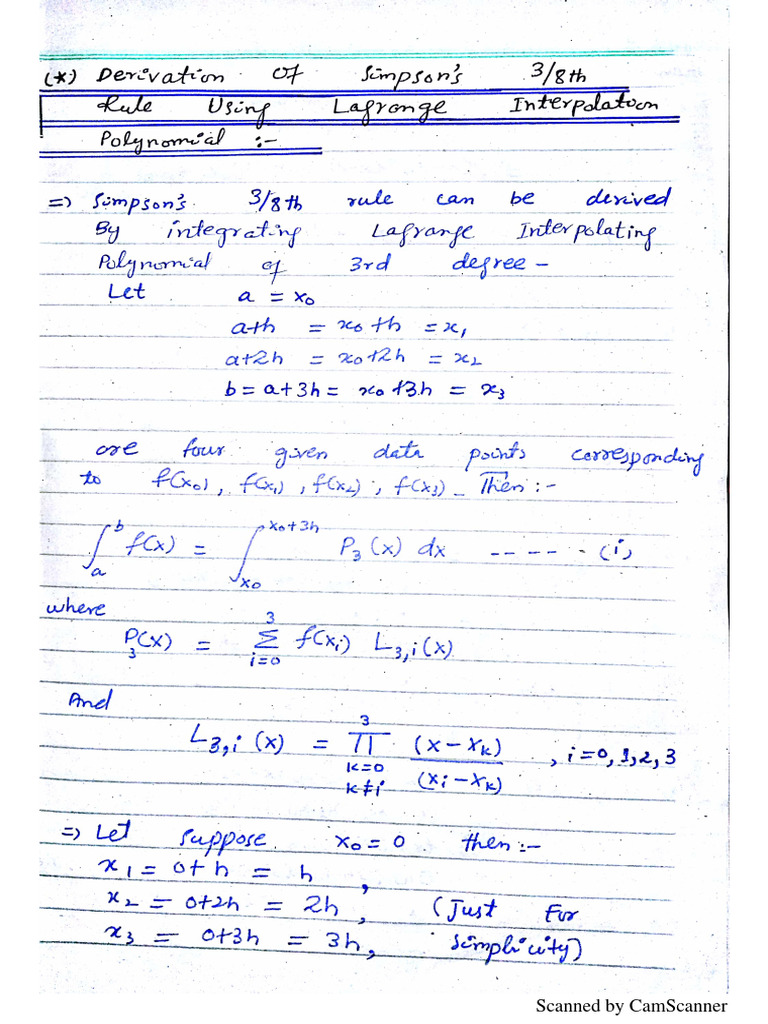 (*) Derivation of Simpson's 3/8th
Rule Using Lagrange Interpolation
Polynomial :-
=) Simpson's 3/8th rule can be derived
By integrating Lagrange Interpolating
Polynomial of 3rd degree -
Let a = x₀
a+h = x₀+h = x₁
a+2h = x₀+2h = x₂
b = a+3h = x₀+3h = x₃
are four given data points corresponding
to f(x₀), f(x₁), f(x₂), f(x₃) - Then :-
∫ₐᵇ f(x) = ∫_{x₀}^{x₀+3h} P₃(x) dx ---- - (i)
where
P₃(x) = Σ_{i=0}^{3} f(xᵢ) L₃,ᵢ(x)
And
L₃,ᵢ(x) = Π_{k=0, k≠i}^{3} (x-xₖ)/(xᵢ-xₖ) , i=0,1,2,3
=) Let suppose x₀ = 0 then :-
x₁ = 0+h = h,
x₂ = 0+2h = 2h, (Just For
x₃ = 0+3h = 3h, simplicity)
Scanned by CamScanner